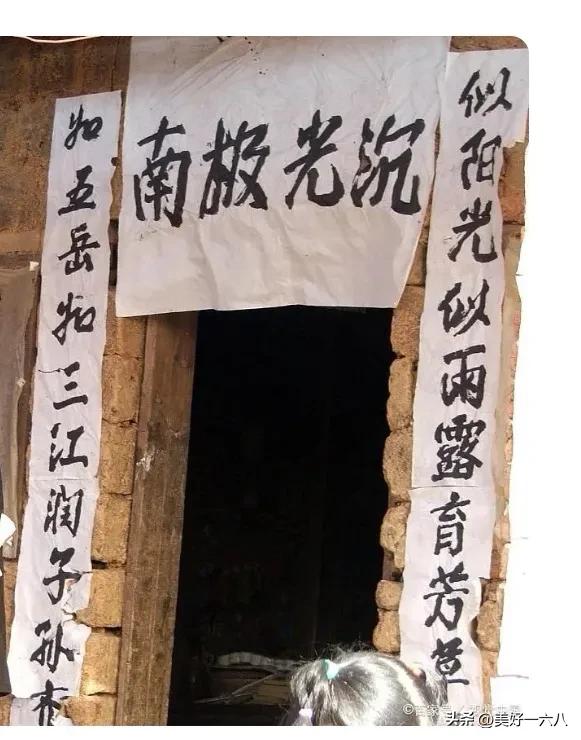 南极光沉
似阳光似雨露育芳
如五岳如三江润子孙
头条 @美好一六八